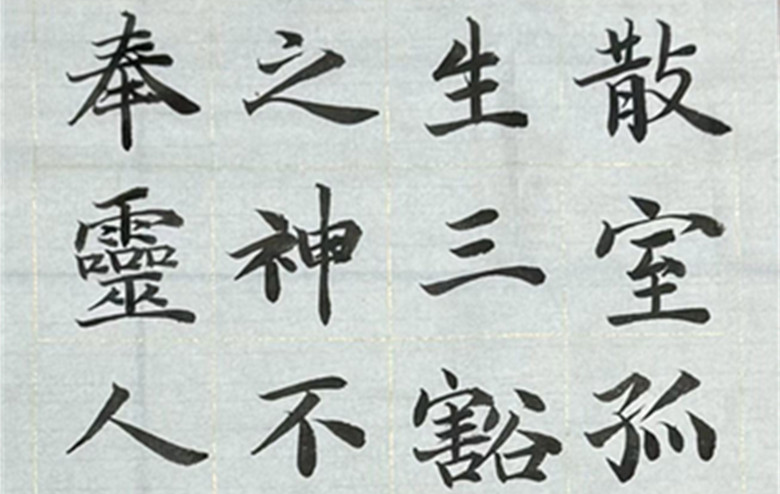 散室孤
生三豁
之神不
奉靈人